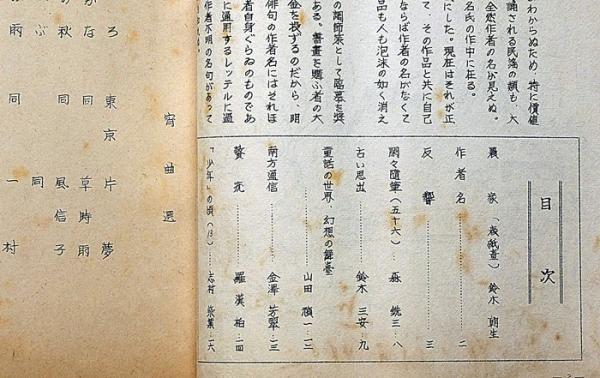 わからぬため 特に價値
誦される民謡の類も、大
全然作者の名が見えぬ。
名氏の作中に在る。
にした。現在はそれが正
て、その作品と共に自己
ならば作者の名がなくて
品も人も泡沫の如く消え
の調節策として臨
ある。書畫を購ふ者の大
金を投ずるのだから、明
俳句の作者名にはそれほ
者自身ぐらゐのものであ
に通用するレッテルに過
作者不明の名句があって
目 次
鈴木 朗生
作者名……二
反響……三
閑々随筆(五十六)…三…八
古い思出……鈴木 三安…九
童話の世界、幻想の舞臺
……山田 禎一…一二
南方通信……金澤 芳翠…一三
贅 沢……羅漢柏…一四
「少年」の頃……志村…一六
宵曲選
ろ 東京 片夢
な 同 草時雨
の秋 同 風信子
ぶ 同
の雨 同 一村